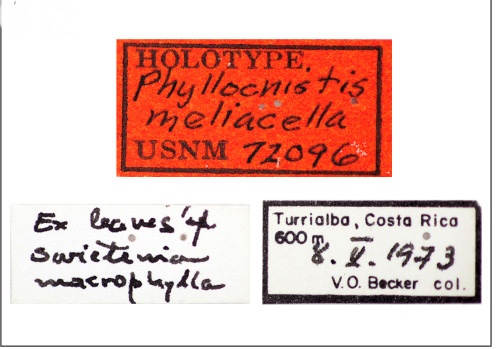 HOLOTYPE.
Phyllocnistis
meliacella
USNM 72096
Ex leaves of
swietenia
macrophylla
Turrialba, Costa Rica
600 m
8. V. 1973
V.O. Becker col.